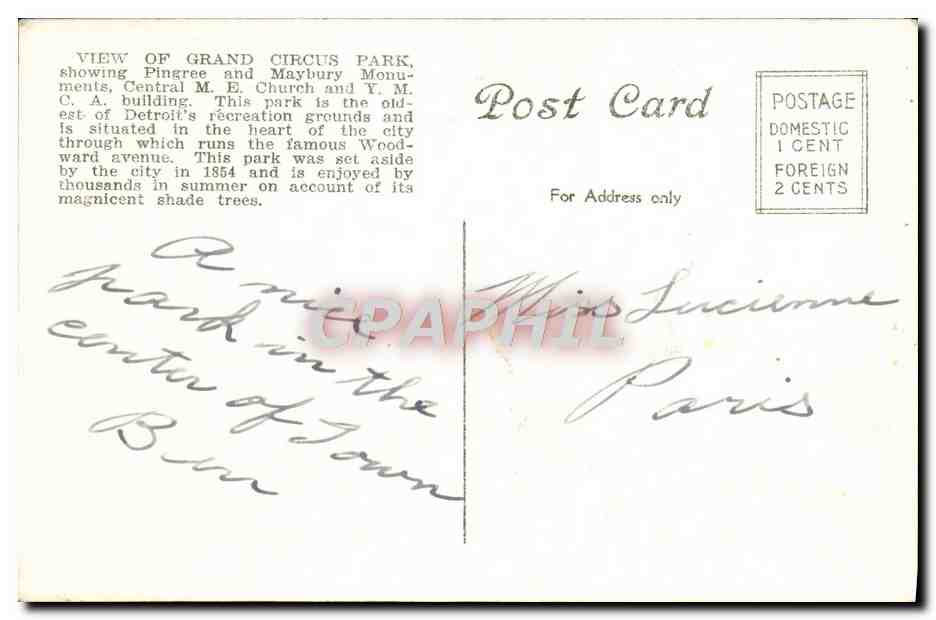 VIEW OF GRAND CIRCUS PARK,
showing Pingree and Maybury Monu-
ments, Central M. E. Church and Y. M.
C. A. building. This park is the old-
est of Detroit's recreation grounds and
is situated in the heart of the city
through which runs the famous Wood-
ward avenue. This park was set aside
by the city in 1854 and is enjoyed by
thousands in summer on account of its
magnicent shade trees.
Post Card
For Address only
POSTAGE
DOMESTIC
1 CENT
FOREIGN
2 CENTS
A nice
park in the
center of Town
Miss Lucienne
Paris
CPAPHIL